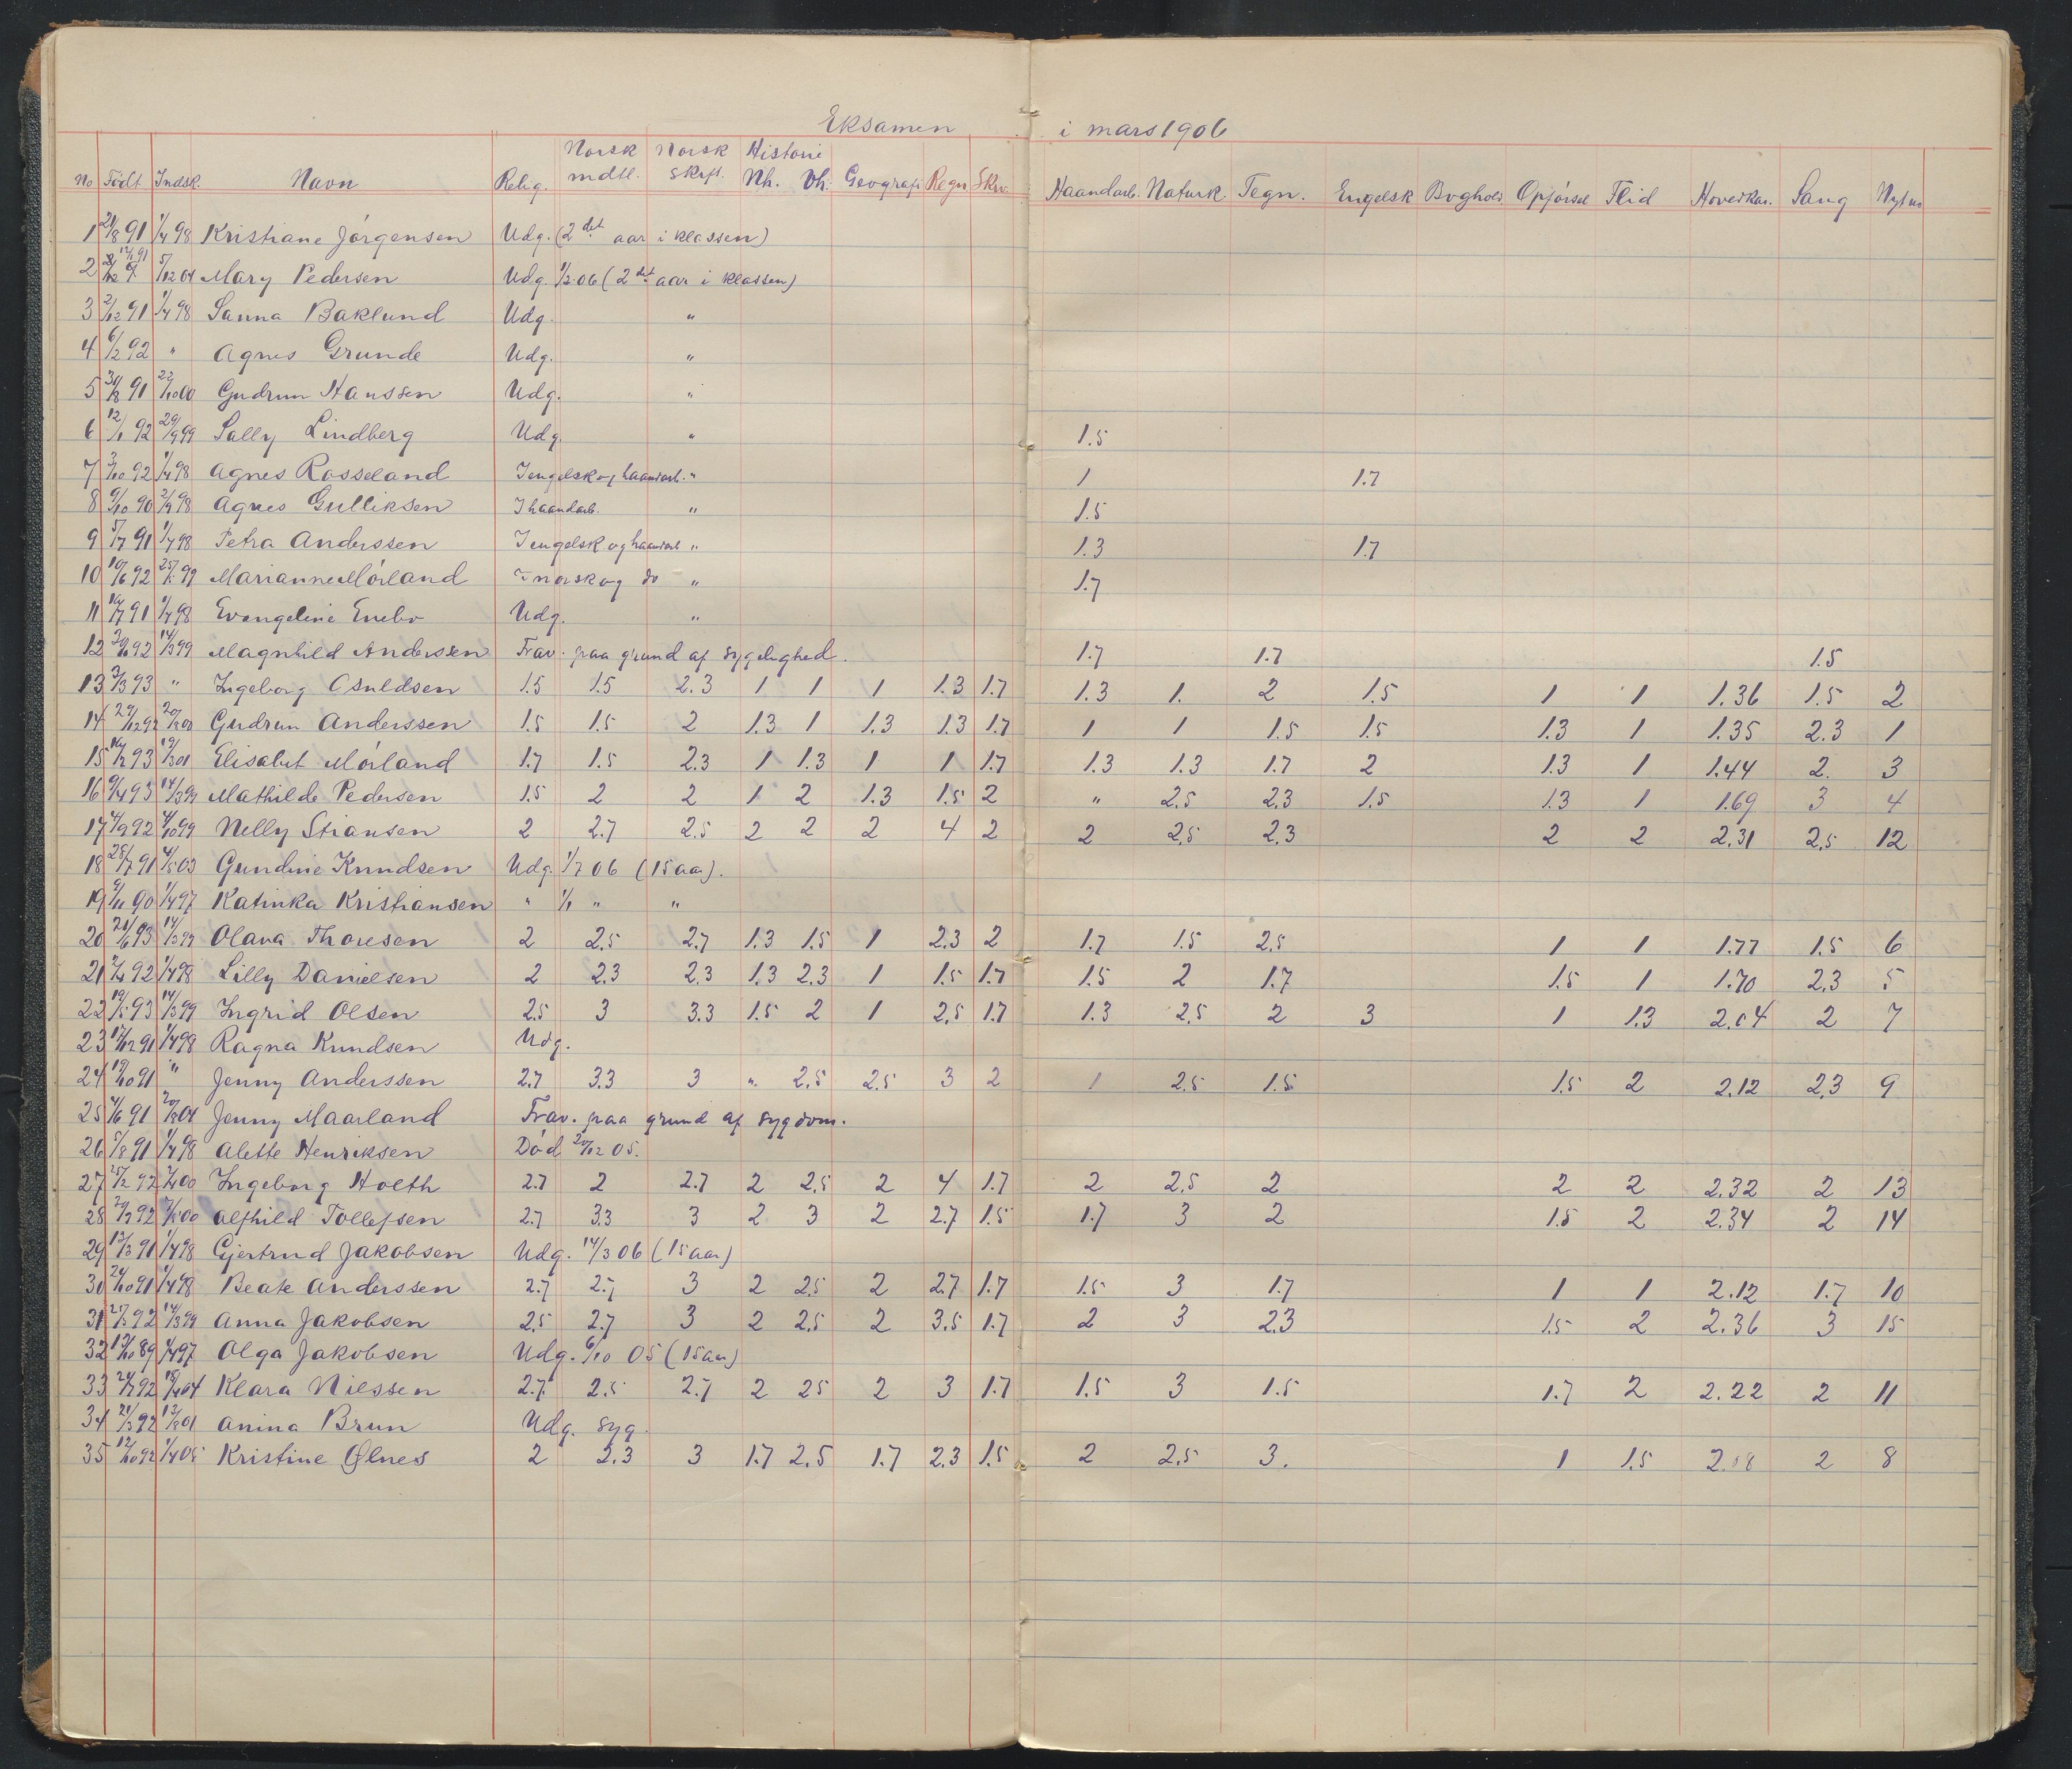 Eksamen i mars 1906
No Født Indsk. Navn Relig. Norsk mdtl. Norsk skrftl. Historie Nh. Vh. Geografi Regn Skriv. Haandarb. Naturk. Tegn. Engelsk Boghold Opførsel Flid Hovedkar. Sang Nyt no
1 21/8 91 1/4 98 Kristiane Jörgensen Udg. (2det aar i klassen)
2 17/1 91 5/12 04 Mary Pedersen Udg. 1/2 06 (2det aar i klassen)
3 2/12 91 1/4 98 Sanna Baklund Udg. "
4 6/2 92 " Agnes Grunde Udg. "
5 30/8 91 22/10 00 Gudrun Hanssen Udg. "
6 12/1 92 29/9 99 Sally Lindberg Udg. " 1.5
7 3/10 92 1/4 98 Agnes Rosseland I engelsk og haandarb. " 1 1.7
8 9/10 90 2/9 98 Agnes Gulliksen I haandarb. " 1.5
9 5/7 91 1/4 98 Petra Anderssen I engelsk og haandarb " 1.3 1.7
10 10/6 92 Marianne Mörland I norsk og do " 1.7
11 91 1/4 98 Evangeline Enebo Udg. "
12 92 14/3 99 Magnhild Anderssen Frav. paa grund af sygelighed. 1.7 1.7 1.5
13 2/3 93 " Ingeborg Osuldsen 1.5 1.5 2.3 1 1 1 1.3 1.7 1.3 1. 2 1.5 1 1 1.36 1.5 2
14 29/12 92 Gudrun Anderssen 1.5 1.5 2 1.3 1 1.3 1.3 1.7 1 1 1.5 1.5 1.3 1 1.35 2.3 1
15 93 19/3 01 Elisabet Mörland 1.7 1.5 2.3 1 1.3 1 1 1.7 1.3 1.3 1.7 2 1.3 1 1.44 2. 3
16 9/4 93 14/3 99 Mathilde Pedersen 1.5 2 2 1 2 1.3 1.5 2 " 2.5 2.3 1.5 1.3 1 1.69 3 4
17 4/9 92 4/10 99 Nelly Stiansen 2 2.7 2.5 2 2 2 4 2 2 2.5 2.3 2 2 2.31 2.5 12
18 28/7 91 4/5 03 Gundine Knudsen Udg. 1/7 06 (15 aar).
19 9/11 90 1/4 97 Katinka Kristiansen " 1/1 " "
20 21/6 93 14/3 99 Olava Thoresen 2 2.5 2.7 1.3 1.5 1 2.3 2 1.7 1.5 2.5 1 1 1.77 1.5 6
21 92 1/4 98 Lilly Danielsen 2 2.3 2.3 1.3 2.3 1 1.5 1.7 1.5 2 1.7 1.5 1 1.70 2.3 5
22 19/5 93 14/3 99 Ingrid Olsen 2.5 3 3.3 1.5 2 1 2.5 1.7 1.3 2.5 2 3 1 1.3 2.04 2 7
23 17/12 91 1/4 98 Ragna Knudsen Udg.
24 19/10 91 " Jenny Anderssen 2.7 3.3 3 " 2.5 2.5 3 2 1 2.5 1.5 1.5 2 2.12 2.3 9
25 4/6 91 Jenny Maarland Frav. paa grund af sygdom.
26 5/8 91 1/4 98 Alette Henriksen Död 20/12 05.
27 25/2 92 Ingeborg Holth 2.7 2 2.7 2 2.5 2 4 1.7 2 2.5 2 2 2 2.32 2 13
28 92 Alfhild Tollefsen 2.7 3.3 3 2 3 2 2.7 1.5 1.7 3 2 1.5 2 2.34 2 14
29 13/3 91 1/4 98 Gjertrud Jakobsen Udg. 14/3 06 (15 aar)
30 24/10 91 1/4 98 Beate Anderssen 2.7 2.7 3 2 2.5 2 2.7 1.7 1.5 3 1.7 1 1 2.12 1.7 10
31 92 14/3 99 Anna Jakobsen 2.5 2.7 3 2 2.5 2 3.5 1.7 2 3 2.3 1.5 2 2.36 3 15
32 89 1/4 97 Olga Jakobsen Udg. 6/10 05 (15 aar)
33 92 18/4 04 Klara Nilssen 2.7 2.5 2.7 2 2.5 2 3 1.7 1.5 3 1.5 1.7 2 2.22 2 11
34 21/3 92 Anina Brun Udg. syg.
35 12/10 92 1/4 05 Kristine Ølnes 2 2.3 3 1.7 2.5 1.7 2.3 1.5 2 2.5 3. 1 1.5 2.08 2 8